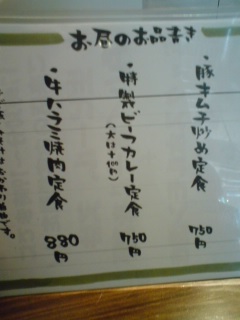 お昼のお品書き
・豚キムチ炒め定食
750円
・特製ビーフカレー定食
(大口+100円)
750円
・牛ハラミ焼肉定食
880円